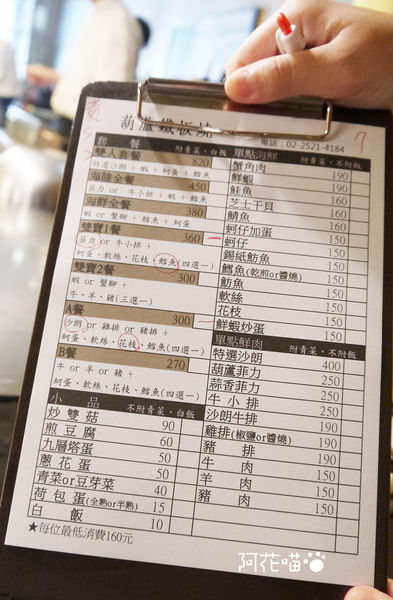 葫蘆鐵板燒
電話 02-2521-4184
套餐 附青菜、白飯
雙人套餐 820
特選沙朗+蝦+蚵蛋+鱈魚
海陸全餐 450
菲力 or 牛小排+蝦+鱈魚
海鮮全餐 380
蝦 or 蟹腳+鱈魚+蚵蛋
雙寶1餐 360
菲力 or 牛小排+
蚵蛋、軟絲、花枝、鱈魚(四選一)
雙寶2餐 300
蝦 or 蟹腳+
牛、羊、豬(三選一)
A餐 300
沙朗 or 雞排 or 豬排+
蚵蛋、軟絲、花枝、鱈魚(四選一)
B餐 270
牛 or 羊 or 豬+
蚵蛋、軟絲、花枝、鱈魚(四選一)
小品 不附青菜、白飯
炒雙菇 90
煎豆腐 60
九層塔蛋 50
蔥花蛋 50
青菜 or 豆芽菜 40
荷包蛋(全熟 or 半熟) 15
白飯 10
★每位最低消費160元
單點海鮮 附青菜、不附飯
蟹角肉 190
鮮蝦 190
鮭魚 150
芝士干貝 150
鯖魚 150
蚵仔加蛋 150
蚵仔 150
錫紙魴魚 150
鱈魚(乾煎or醬燒) 150
魴魚 150
軟絲 150
花枝 150
鮮蝦炒蛋 150
單點鮮肉 附青菜、不附飯
特選沙朗 400
葫蘆菲力 250
蒜香菲力 250
牛小排 250
沙朗牛排 190
雞排(椒鹽or醬燒) 190
豬排 190
牛肉 150
羊肉 150
豬肉 150
阿花喵